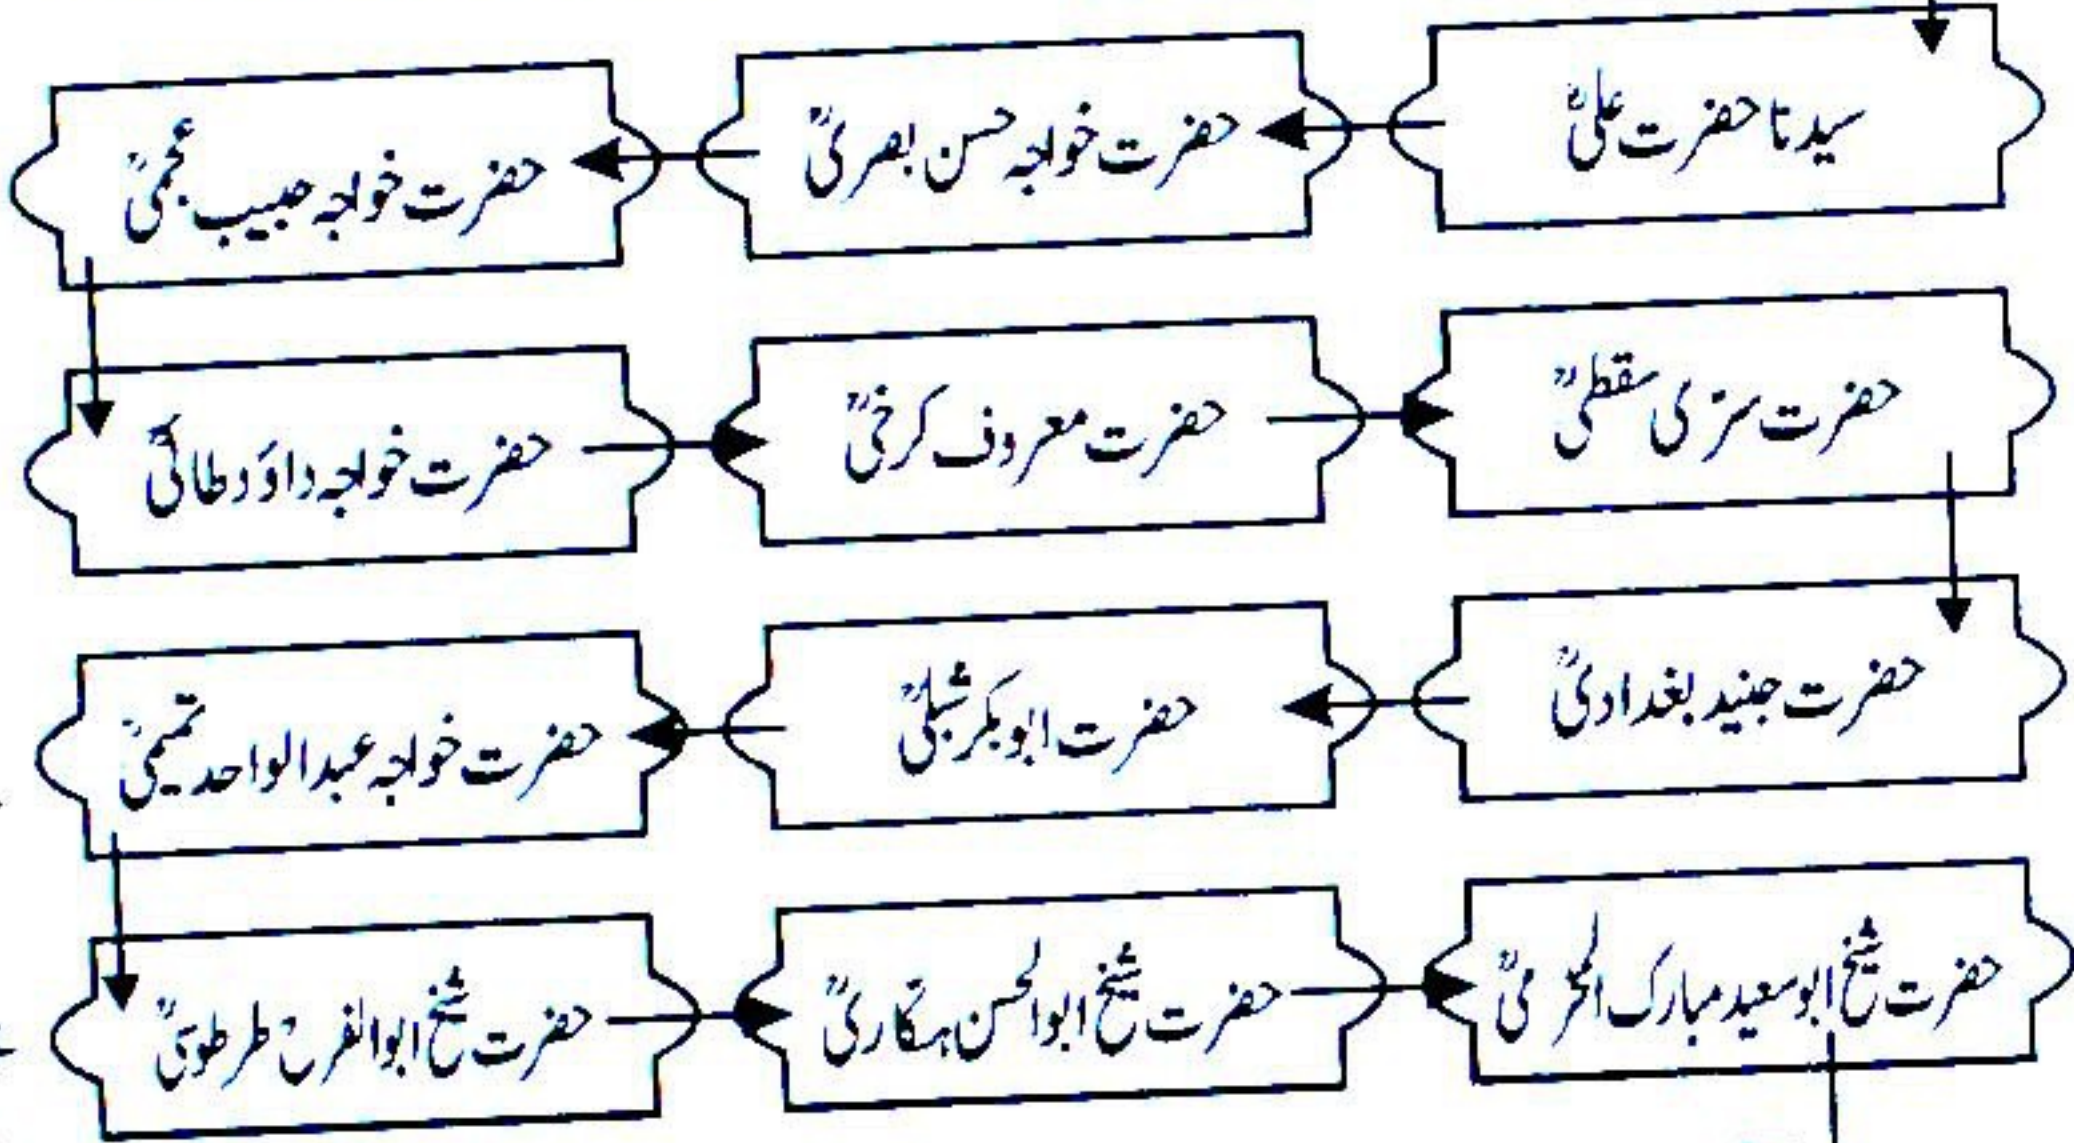 سیدنا حضرت علیؓ
حضرت خواجہ حسن بصریؒ
حضرت خواجہ حبیب عجمیؒ
حضرت خواجہ داؤد طائیؒ
حضرت معروف کرخیؒ
حضرت سرّی سقطیؒ
حضرت جنید بغدادیؒ
حضرت ابوبکر شبلیؒ
حضرت خواجہ عبدالواحد تمیمیؒ
حضرت شیخ ابوالفرح طرطوسیؒ
حضرت شیخ ابوالحسن ہنکاریؒ
حضرت شیخ ابوسعید مبارک المخرّمیؒ